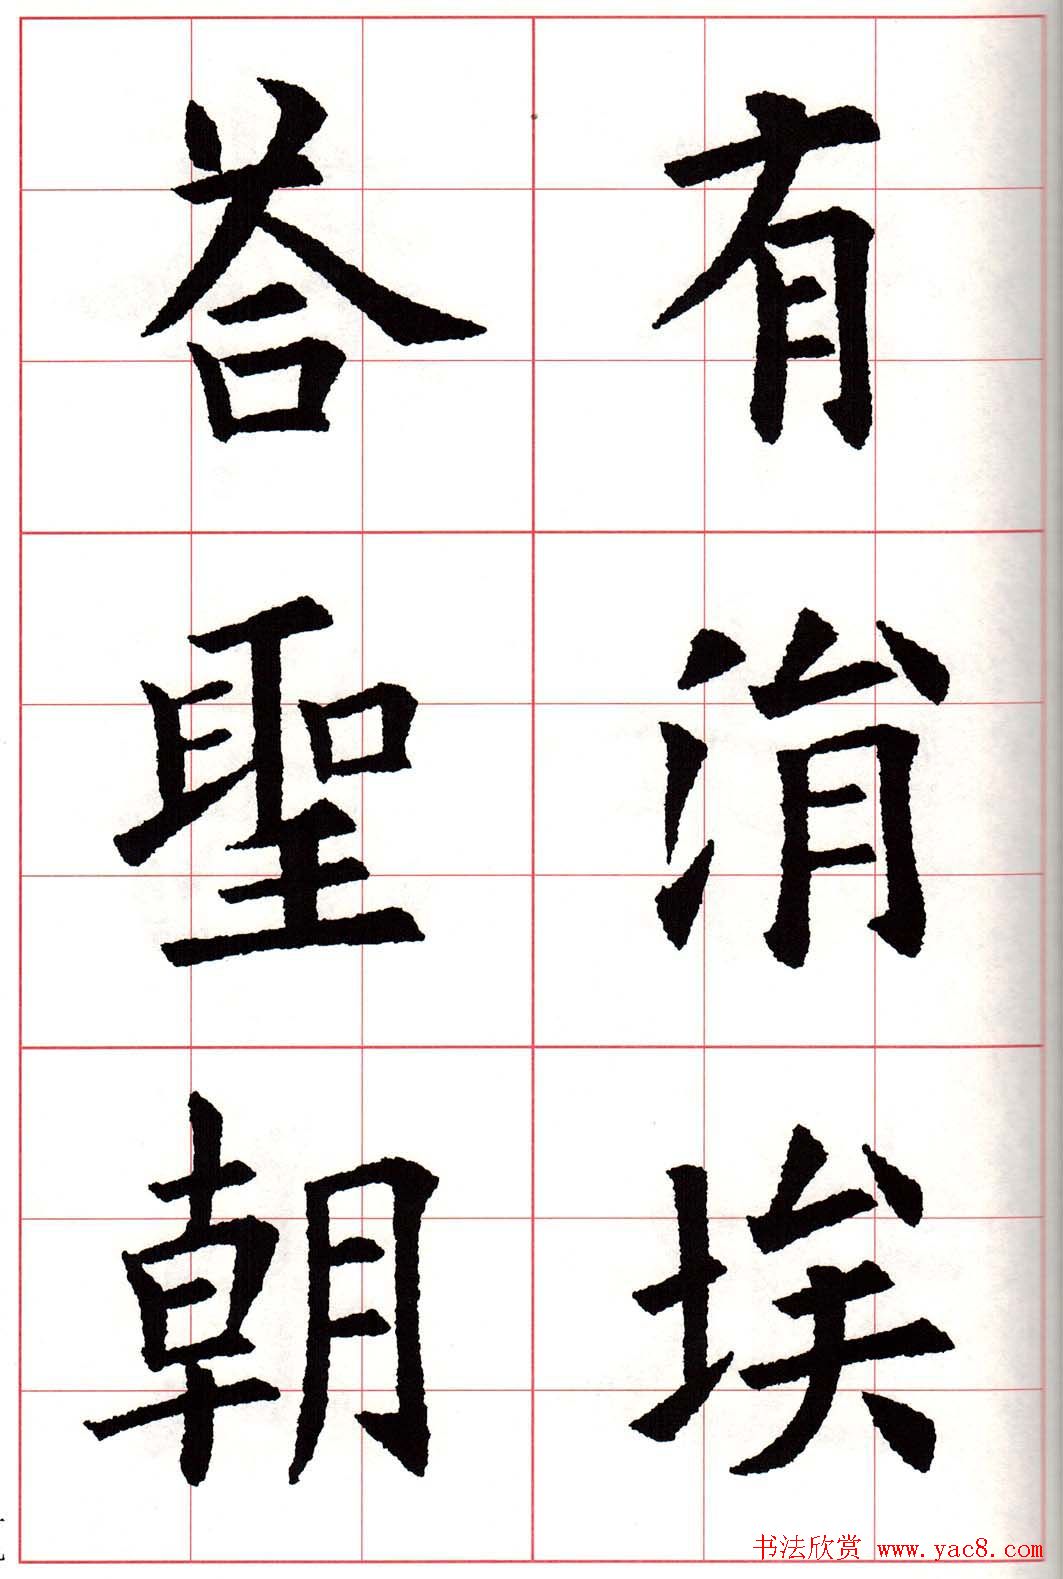 有涓埃
荅聖朝
书法欣赏 www.yac8.com